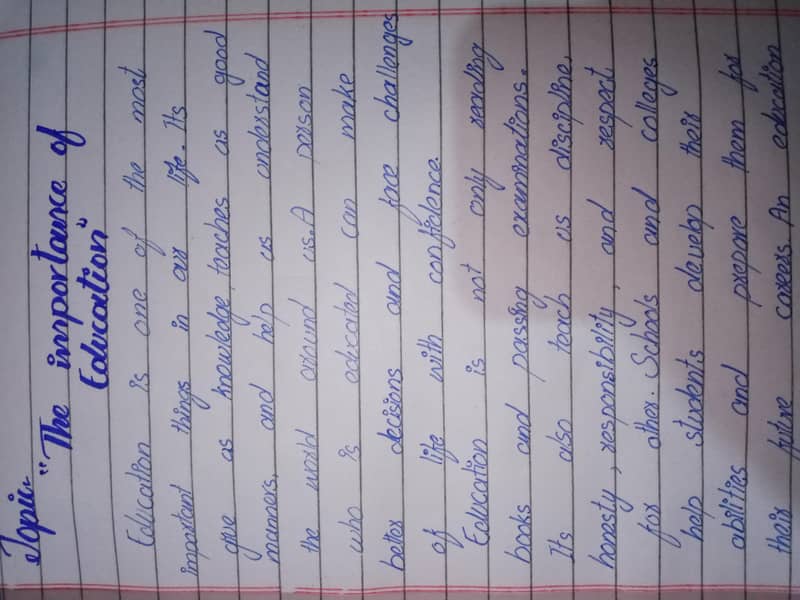 Topic
"The importance of
Education"
Education is one of the most
important things in our life. Its
give as knowledge, teaches as good
manners, and help as understand
the world around us. A person
who is educated can make
better decisions and face challenges
of life with confidence.
Education is not only reading
books and passing examinations.
Its also teach us discipline,
honesty, responsibility, and respect
for other. Schools and colleges
help students develop their
abilities and prepare them for
their future careers. An education